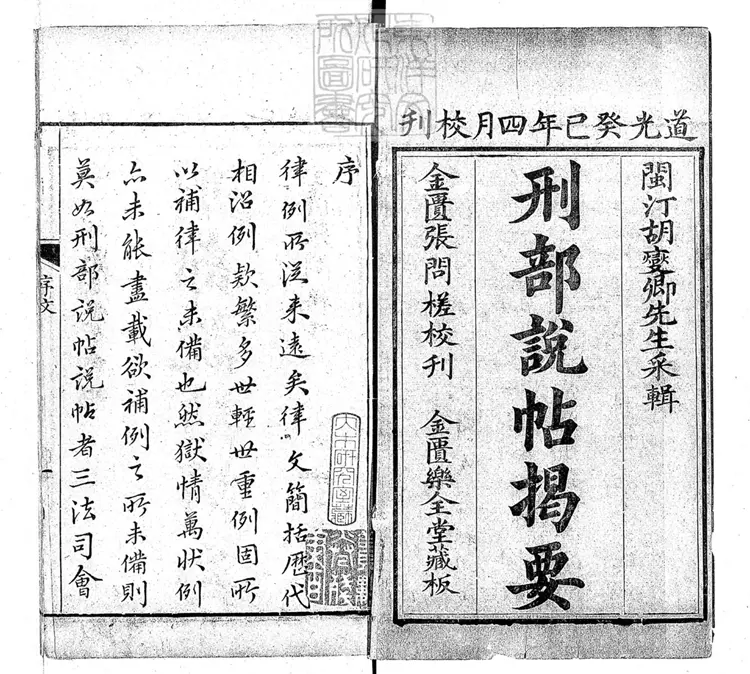 道光癸巳年四月校刊
閩汀胡燮卿先生采輯
刑部說帖揭要
金匱張問槎校刊 金匱樂全堂藏板
序
律例所從来遠矣律文簡括歷代
相沿例欵繁多世輕世重例固所
以補律之未備也然獄情萬狀例
亦未能盡載欲補例之所未備則
莫如刑部説帖説帖者三法司會
序文